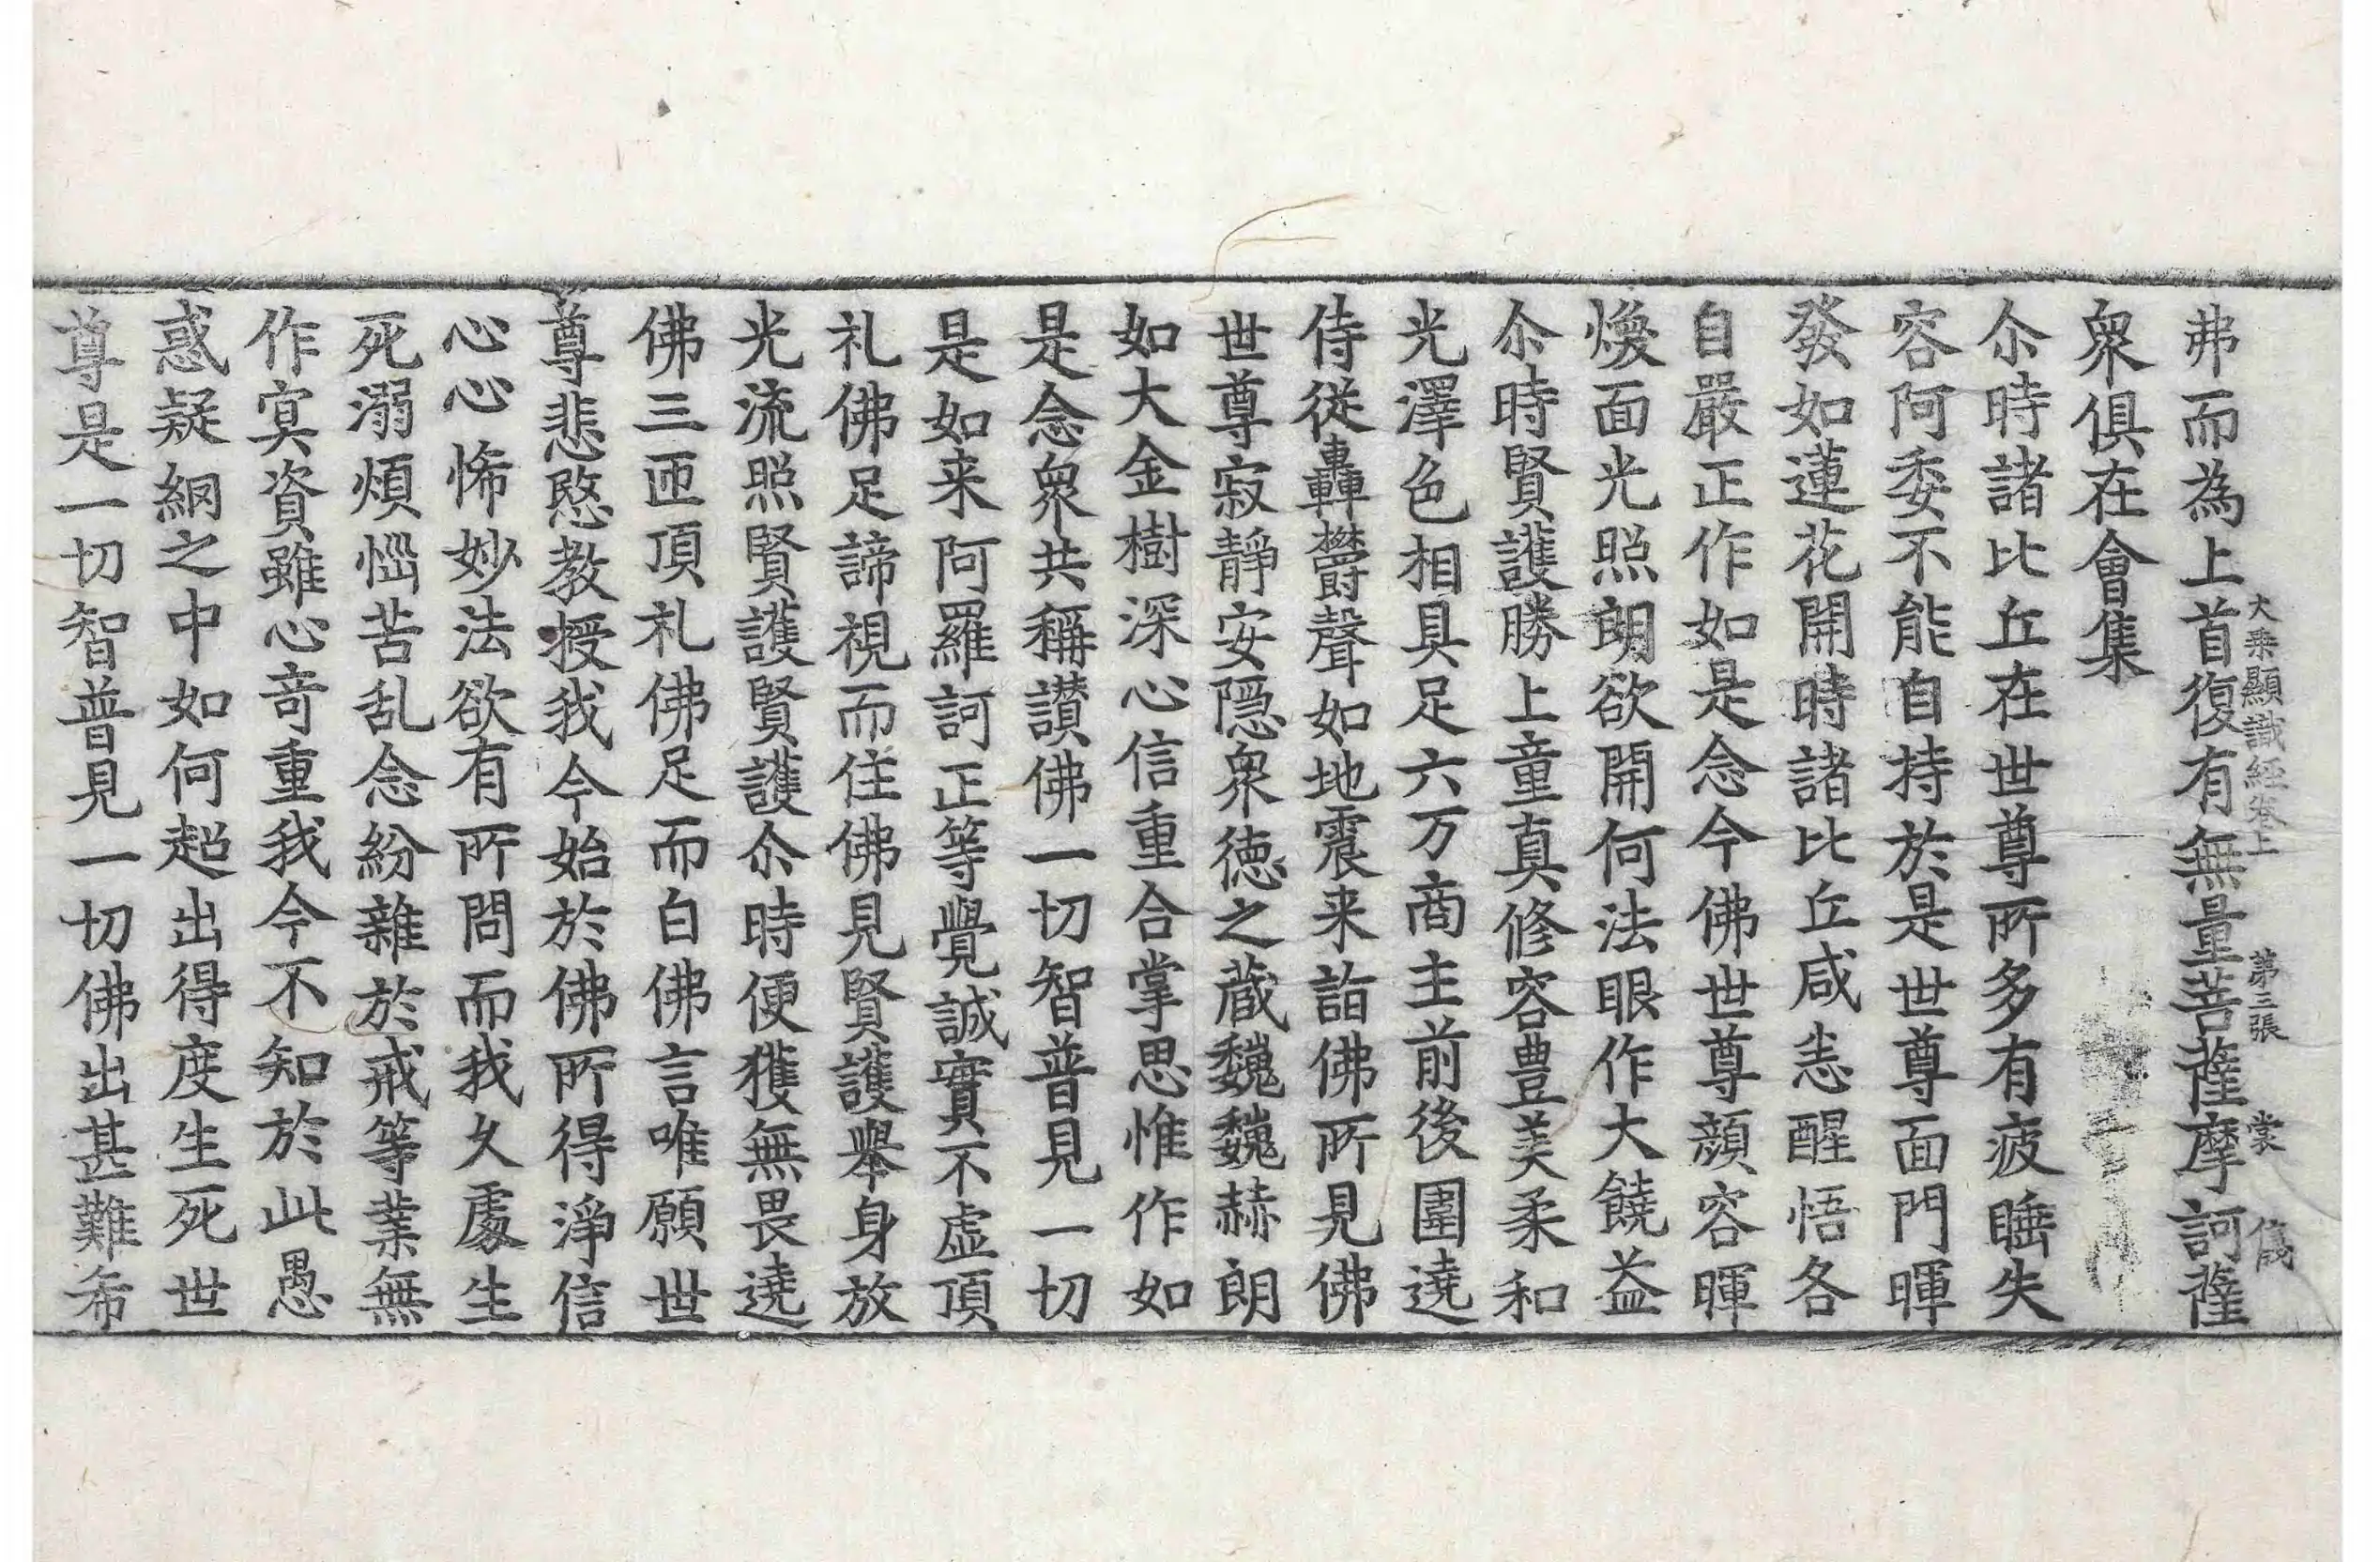 大乘顯識經卷上 第三張 裳 儀
弗而為上首復有無量菩薩摩訶薩
衆俱在會集
尒時諸比丘在世尊所多有疲睡失
容阿委不能自持於是世尊面門暉
發如蓮花開時諸比丘咸恙醒悟各
自嚴正作如是念今佛世尊顔容暉
煥面光照朗欲開何法眼作大饒益
尒時賢護勝上童真修容豊美柔和
光澤色相具足六万商主前後圍遶
侍從轟欝聲如地震来詣佛所見佛
世尊寂靜安隱衆徳之蔵巍巍赫朗
如大金樹深心信重合掌思惟作如
是念衆共稱讃佛一切智普見一切
是如来阿羅訶正等覺誠實不虛頂
礼佛足諦視而住佛見賢護舉身放
光流照賢護賢護尒時便獲無畏遶
佛三匝頂礼佛足而白佛言唯願世
尊悲愍教授我今始於佛所得淨信
心心悕妙法欲有所問而我久處生
死溺煩惱苦乱念紛雜於戒等業無
作冥資雖心竒重我今不知於此愚
惑疑網之中如何超出得度生死世
尊是一切智普見一切佛出甚難希